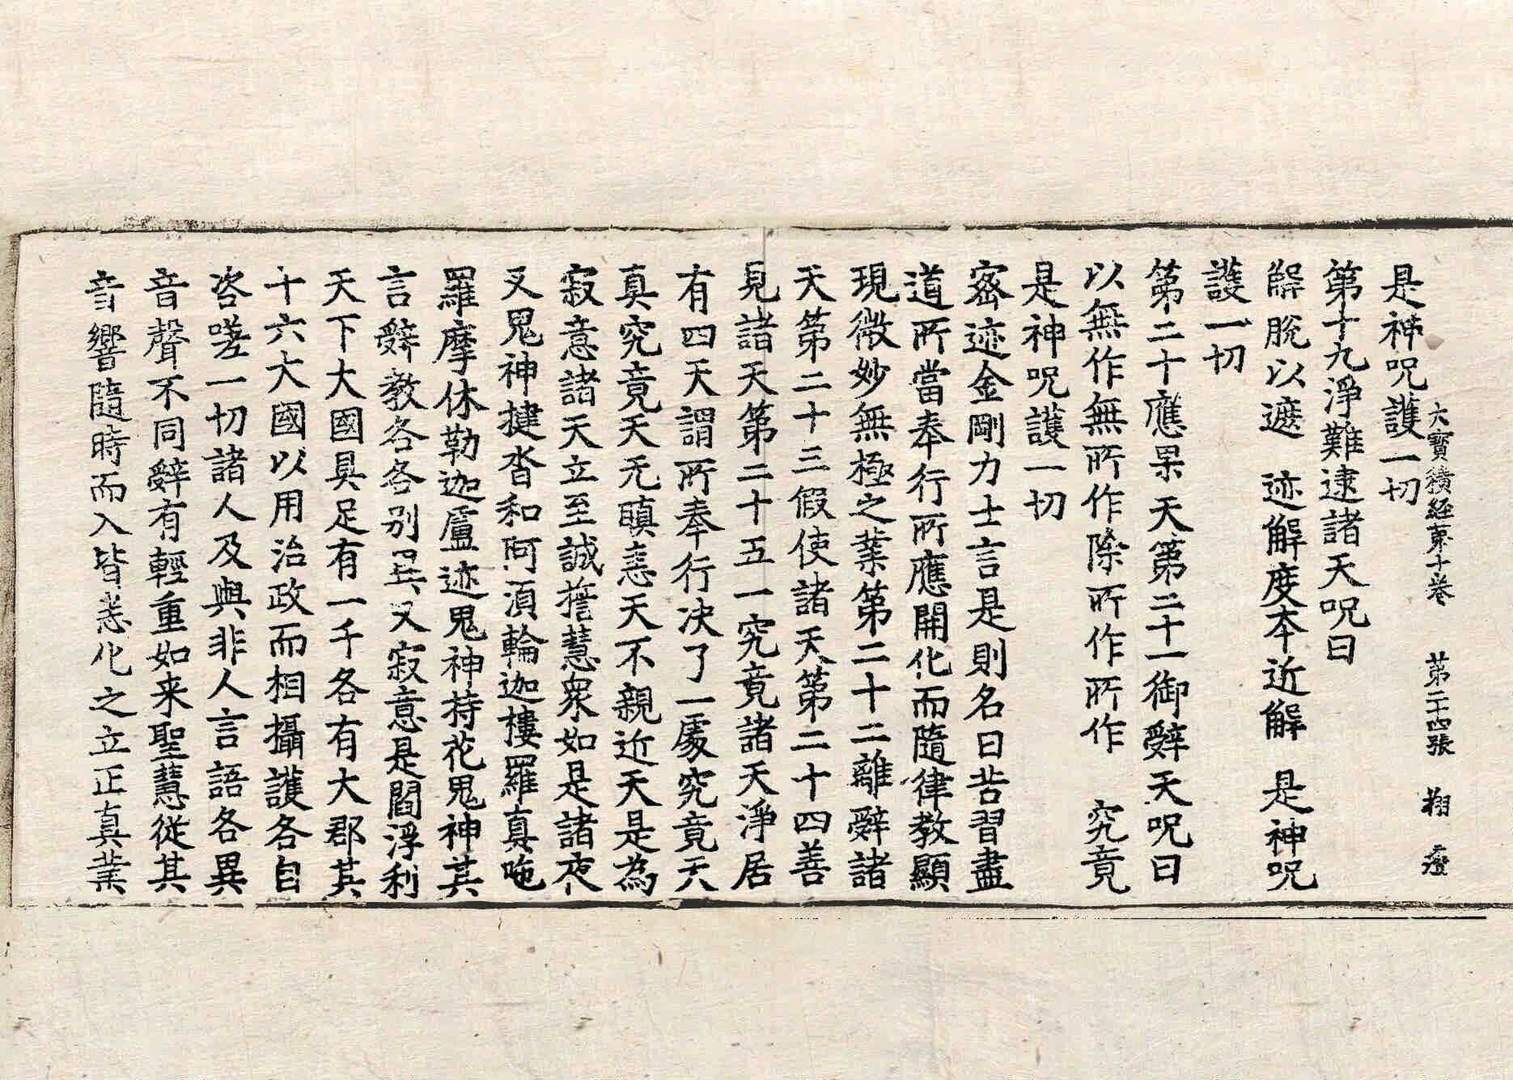 大寶積經第十卷　第二十四張　翔
是神呪護一切
第十九淨難逮諸天呪曰
解脫以遮　迹解度本近解　是神呪
護一切
第二十應果天第二十一御辭天呪曰
以無作無所作除所作所作　究竟
是神呪護一切
密迹金剛力士言是則名曰苦習盡
道所當奉行所應開化而隨律教顯
現微妙無極之業第二十二離辭諸
天第二十三假使諸天第二十四善
見諸天第二十五一究竟諸天淨居
有四天謂所奉行決了一處究竟天
真究竟天无瞋恚天不親近天是為
寂意諸天立至誠擔慧衆如是諸夜
叉鬼神揵沓和阿湏輪迦樓羅真陁
羅摩休勒迦廬迹鬼神持花鬼神其
言辭教各各別異又寂意是閻浮利
天下大國具足有一千各有大郡其
十六大國以用治政而相攝護各自
咨嗟一切諸人及與非人言語各異
音聲不同辭有輕重如来聖慧從其
音響隨時而入皆恙化之立正真業